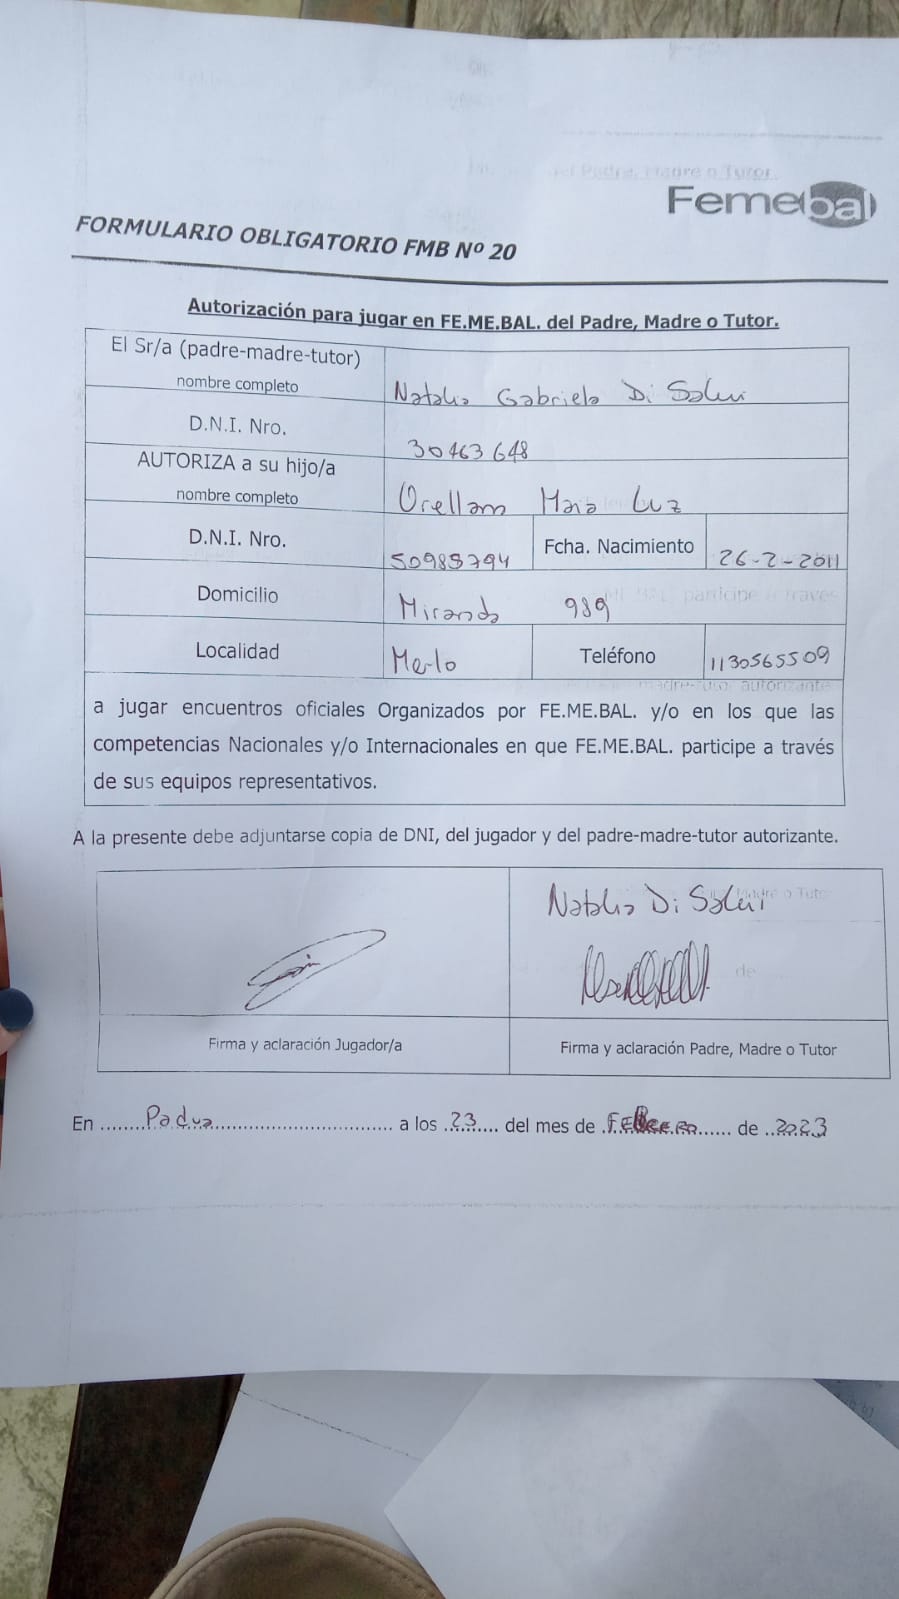 Femebal
FORMULARIO OBLIGATORIO FMB Nº 20
Autorización para jugar en FE.ME.BAL. del Padre, Madre o Tutor.
El Sr/a (padre-madre-tutor)
nombre completo
Natalia Gabriela Di Salvi
D.N.I. Nro.
30463648
AUTORIZA a su hijo/a
nombre completo
Orellana Maia Luz
D.N.I. Nro.
50985794
Fcha. Nacimiento
26-2-2011
Domicilio
Miranda 989
Localidad
Merlo
Teléfono
1130565509
a jugar encuentros oficiales Organizados por FE.ME.BAL. y/o en los que las
competencias Nacionales y/o Internacionales en que FE.ME.BAL. participe a través
de sus equipos representativos.
A la presente debe adjuntarse copia de DNI, del jugador y del padre-madre-tutor autorizante.
Natalia Di Salvi
Firma y aclaración Jugador/a
Firma y aclaración Padre, Madre o Tutor
En ........Padua................................. a los ..23.... del mes de .FEBRERO...... de ..2023